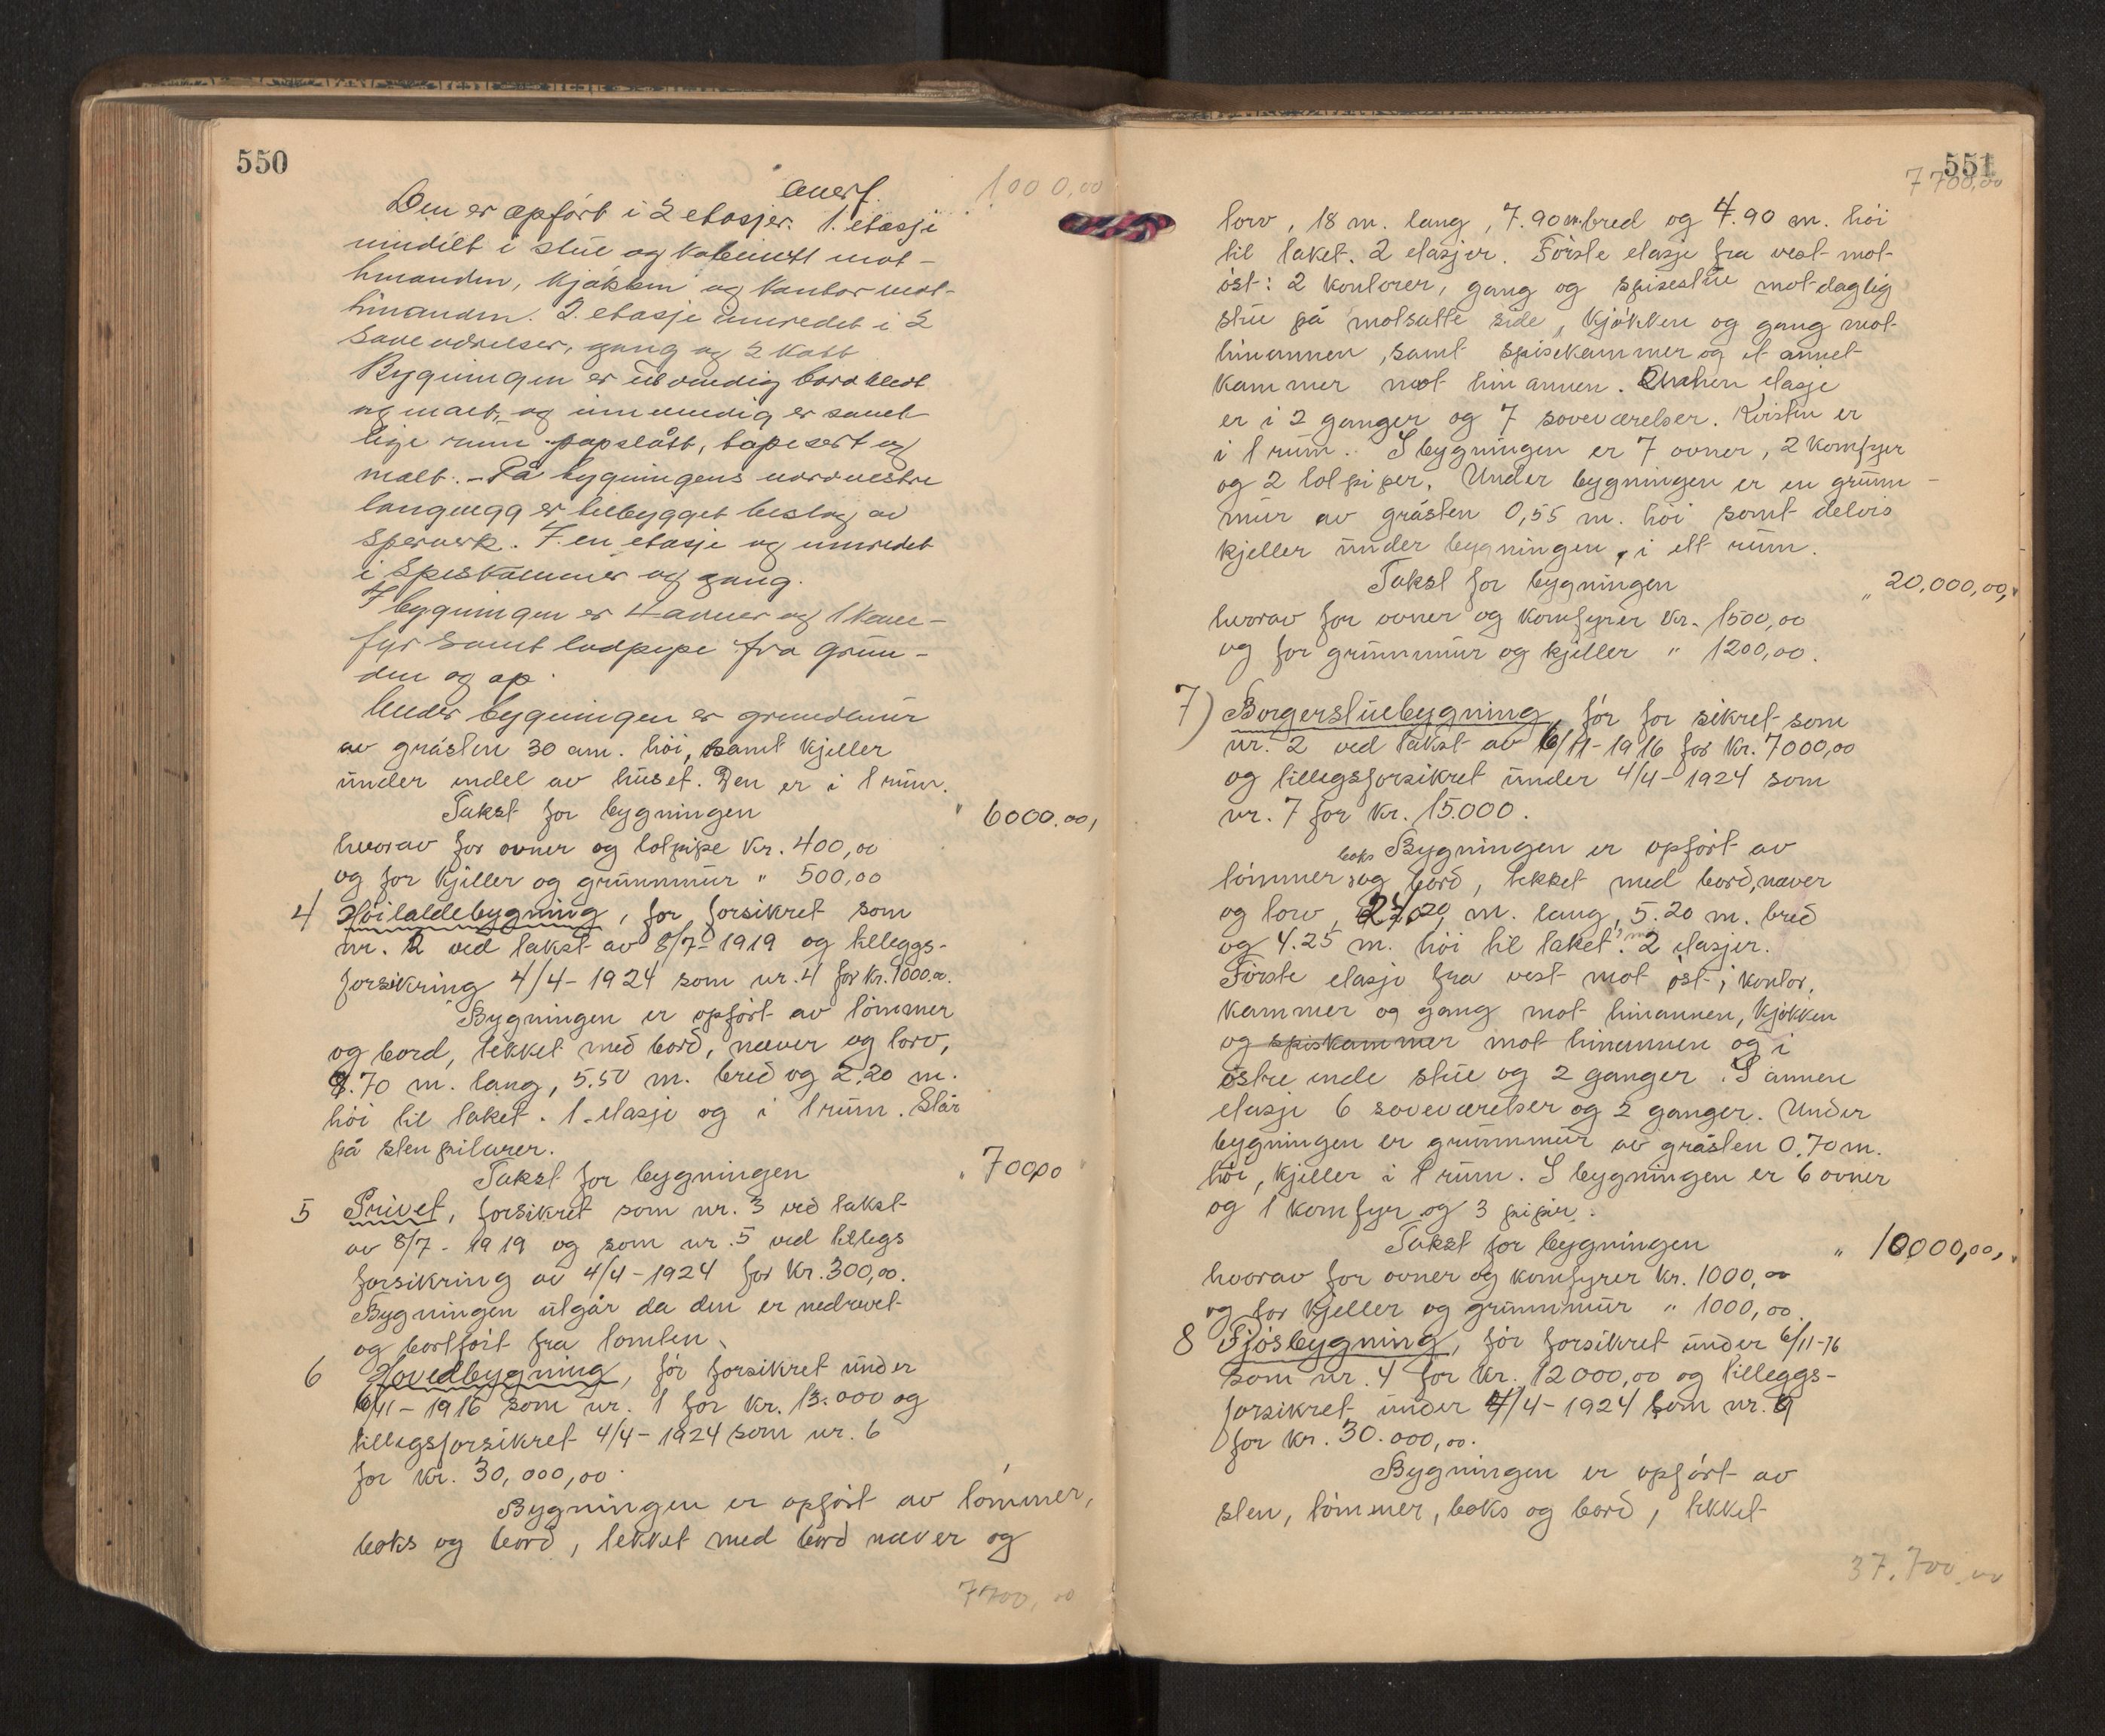 550
Overf. 1000,00
Den er opført i 2 etasjer. 1. etasje
inndelt i stue og kabinett mot-
hinanden, kjøkken og kontor mot-
hinanden. 2. etasje innredet i 2
soveværelser, gang og 2 kott
Bygningen er utvendig bordkledt
og malt, og innvendig er samt-
lige rum papslått, tapesert og
malt. - På bygningens nordvestre
langvegg er tilbygget beslag av
sperverk. I en etasje og innredet
i spiskammer og gang.
I bygningen er 4 ovner og 1 kom-
fyr samt lodpipe fra grun-
den og op.
Under bygningen er grundmur
av gråsten 30 cm. høi, samt kjeller
under endel av huset. Den er i 1 rum.
Takst for bygningen " 6000.00,
hvorav for ovner og lotpipe kr. 400,00
og for kjeller og grunnmur " 500,00
4 Høiladebygning, før forsikret som
nr. 2 ved takst av 8/7-1919 og tilleggs-
forsikring 4/4-1924 som nr. 4 for kr. 1000.00.
Bygningen er opført av tømmer
og bord, tekket med bord, never og torv,
9.70 m. lang, 5.50 m. bred og 2.20 m.
høi til taket. 1 etasje og i 1 rum. Står
på stenpilarer.
Takst for bygningen " 700,00
5 Privet, forsikret som nr. 3 ved takst
av 8/7-1919 og som nr. 5 ved tillegs
forsikring av 4/4-1924 for kr. 300,00.
Bygningen utgår da den er nedrevet
og bortført fra tomten.
6 Hovedbygning, før forsikret under
6/11-1916 som nr. 1 for kr. 13.000 og
tillegsforsikret 4/4-1924 som nr. 6
for kr. 30,000,00.
Bygningen er opført av tømmer,
boks og bord, tekket med bord never og
7700,00
551
7700,00
torv, 18 m. lang, 7.90 m bred og 4.90 m. høi
til taket. 2 etasjer. Første etasje fra vest mot
øst: 2 kontorer, gang og spisestue mot daglig
stue på motsatte side, kjøkken og gang mot
hinannen, samt spisekammer og et annet
kammer mot hinannen. Anden etasje
er i 2 ganger og 7 soveværelser. Kvisten er
i 1 rum. I bygningen er 7 ovner, 2 komfyer
og 2 lotpiper. Under bygningen er en grunn-
mur av gråsten 0,55 m. høi samt delvis
kjeller under bygningen, i ett rum.
Takst for bygningen " 20.000,00,
hvorav for ovner og komfyrer kr. 1500,00
og for grunnmur og kjeller " 1200,00.
7) Borgerstuebygning, før for sikret som
nr. 2 ved takst av 6/11-1916 for kr. 7000,00
og tillegsforsikret under 4/4-1924 som
nr. 7 for kr. 15.000.
Bygningen er opført av
tømmer, boks og bord, tekket med bord, never
og torv, m. lang, 5.20 m. bred
og 4.25 m. høi til taket. 2 etasjer.
Første etasje fra vest mot øst; kontor,
kammer og gang mot hinannen, kjøkken
og spiskammer mot hinannen og i
østre ende stue og 2 ganger. I annen
etasje 6 soveværelser og 2 ganger. Under
bygningen er grunnmur av gråsten 0.70 m.
høi, kjeller i 1 rum. I bygningen er 6 ovner
og 1 komfyr og 3 piper.
Takst for bygningen " 10000,00,
hvorav for ovner og komfyrer kr. 1000,00
og for kjeller og grunnmur " 1000,00.
8 Fjøsbygning, før forsikret under 6/11-16
som nr. 4 for kr. 12000,00 og tilleggs-
forsikret under 4/4-1924 som nr. 9
for kr. 30.000,00.
Bygningen er opført av
sten, tømmer, boks og bord, tekket
37.700,00